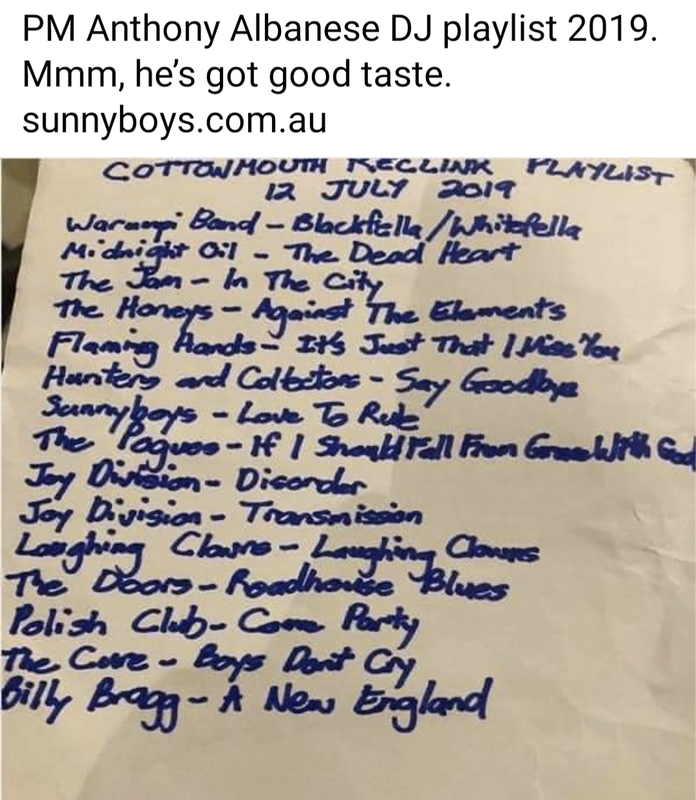 PM Anthony Albanese DJ playlist 2019.
Mmm, he's got good taste.
sunnyboys.com.au
COTTONMOUTH RECLINK PLAYLIST
12 JULY 2019
Warumpi Band - Blackfella/Whitefella
Midnight Oil - The Dead Heart
The Jam - In The City
The Honeys - Against The Elements
Flaming Hands - It's Just That I Miss You
Hunters and Collectors - Say Goodbye
Sunnyboys - Love To Rule
The Pogues - If I Should Fall From Grace With God
Joy Division - Disorder
Joy Division - Transmission
Laughing Clowns - Laughing Clowns
The Doors - Roadhouse Blues
Polish Club - Come Party
The Cure - Boys Dont Cry
Billy Bragg - A New England